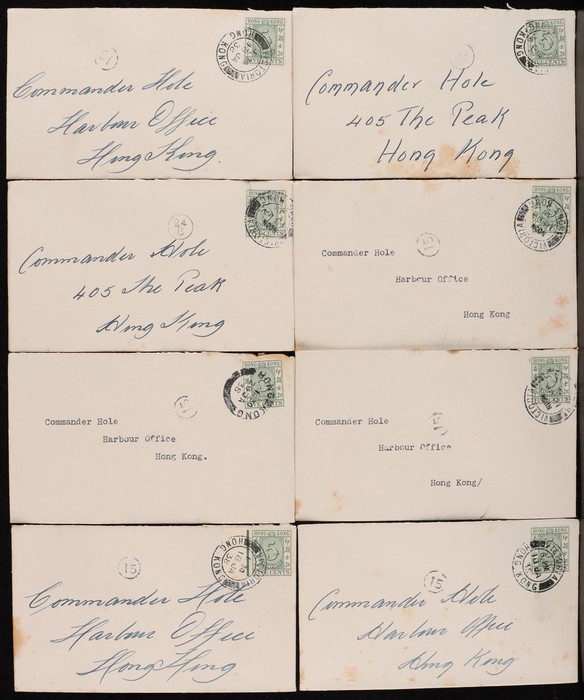 HONG KONG
5
CENTS
VICTORIA
HONG KONG
Commander Hole
Harbour Office
Hong Kong.
HONG KONG
5
CENTS
Commander Hole
405 The Peak
Hong Kong
24
VICTORIA
Commander Hole
405 The Peak
Hong Kong
HONG KONG
VICTORIA
15
Commander Hole
Harbour Office
Hong Kong
HONG KONG
15
Commander Hole
Harbour Office
Hong Kong.
HONG KONG
VICTORIA
15
Commander Hole
Harbour Office
Hong Kong/
VICTORIA
18 JA
HONG KONG
5
CENTS
15
Commander Hole
Harbour Office
Hong Kong
HONG KONG
VICTORIA
HONG KONG
15
Commander Hole
Harbour Office
Hong Kong